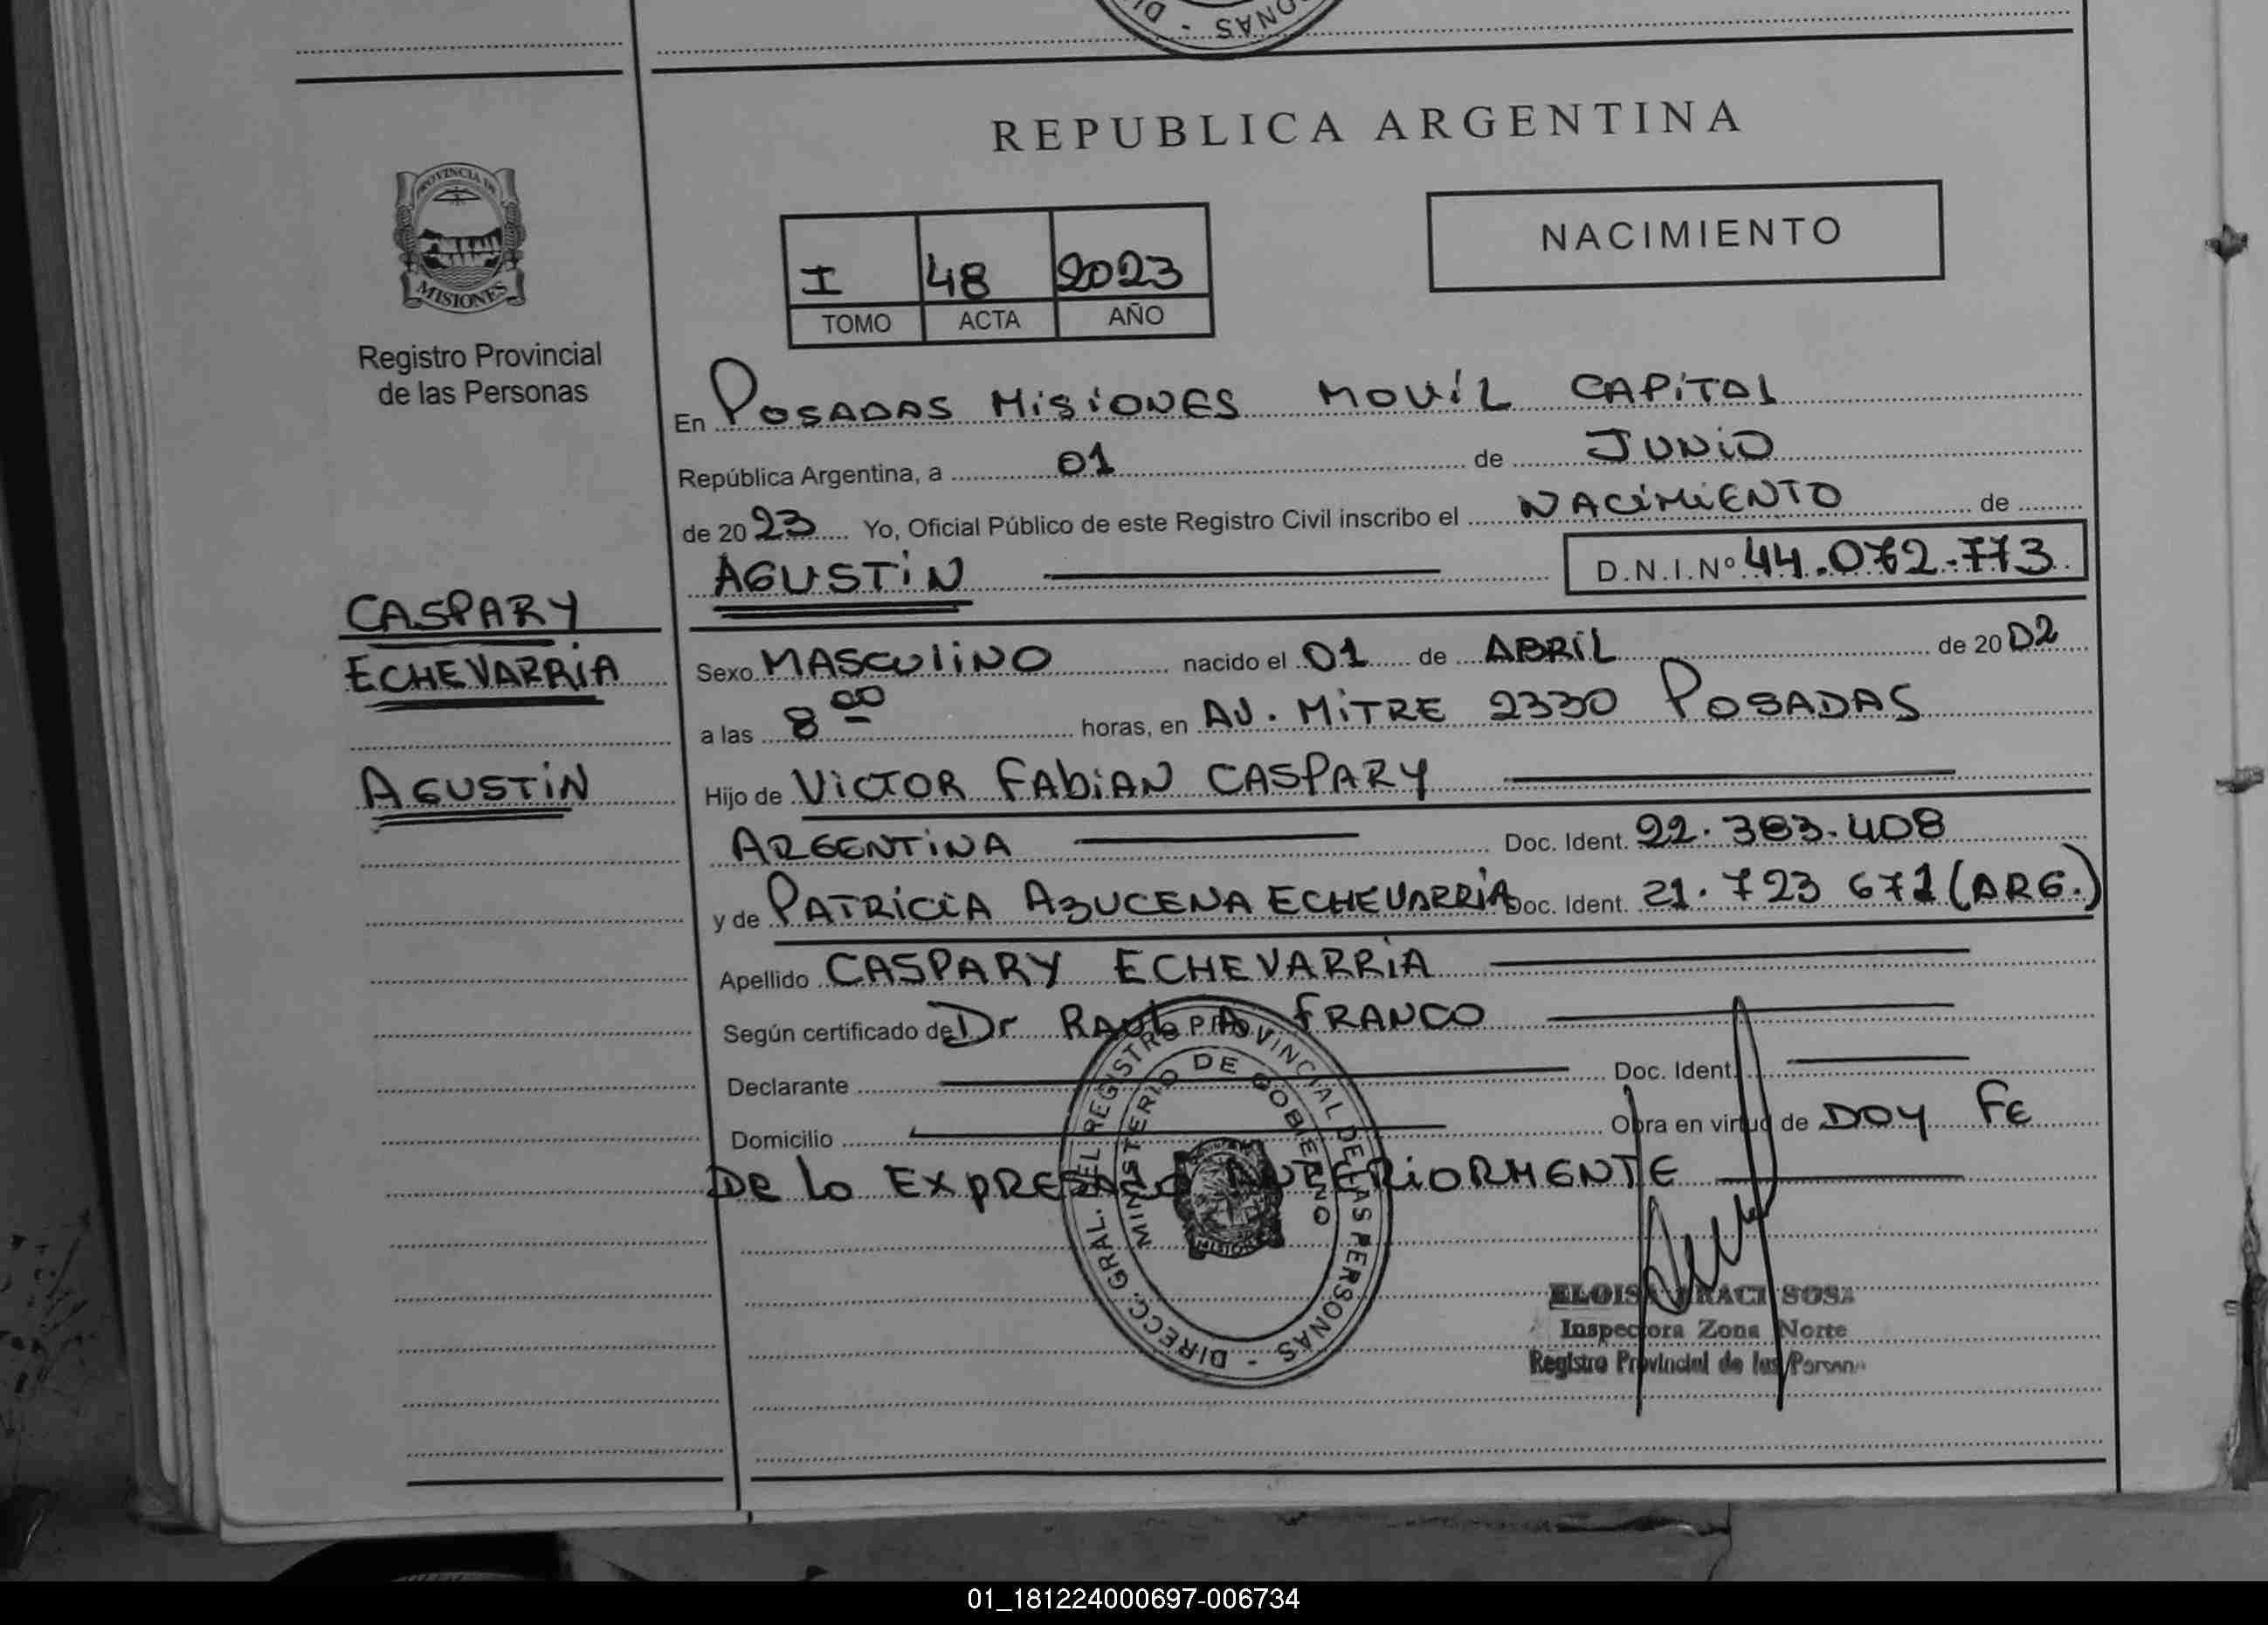 ONAS - DI
REPUBLICA ARGENTINA
PROVINCIA DE
MISIONES
Registro Provincial
de las Personas
NACIMIENTO
I 48 2023
TOMO ACTA AÑO
En POSADAS MISIONES MOVIL CAPITAL
República Argentina, a 01 de JUNIO
de 2023 Yo, Oficial Público de este Registro Civil inscribo el NACIMIENTO de
AGUSTIN D.N.I.Nº 44.072.773
CASPARY
ECHEVARRIA
AGUSTIN
Sexo MASCULINO nacido el 01 de ABRIL de 2002
a las 8 00 horas, en AV. MITRE 2330 POSADAS
Hijo de VICTOR FABIAN CASPARY
ARGENTINA Doc. Ident. 22.383.408
y de PATRICIA AZUCENA ECHEVARRIA Doc. Ident. 21.723 671 (ARG.)
Apellido CASPARY ECHEVARRIA
Según certificado de Dr RAUL A FRANCO
Declarante Doc. Ident.
Domicilio Obra en virtud de DOY FE
DE LO EXPRESADO ANTERIORMENTE
DIRECC. GRAL. DEL REGISTRO PROVINCIAL DE LAS PERSONAS -
MINISTERIO DE GOBIERNO
MISIONES
ELOISA SOSA
Inspectora Zona Norte
Registro Provincial de las Person
01_181224000697-006734